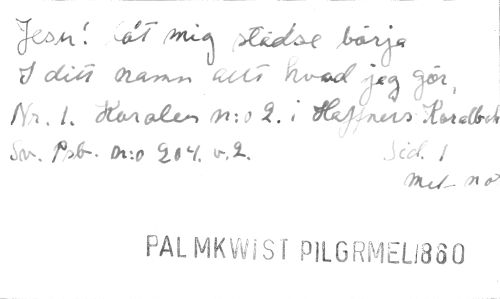 Jesu! låt mig städse börja
I ditt namn allt hvad jag gör,
Nr. 1. Koralen n:o 2. i Hæffners Koralbok
Sv. Psb. n:o 204. v. 2. Sid. 1
mel no
PALMKWIST PILGRMEL1860